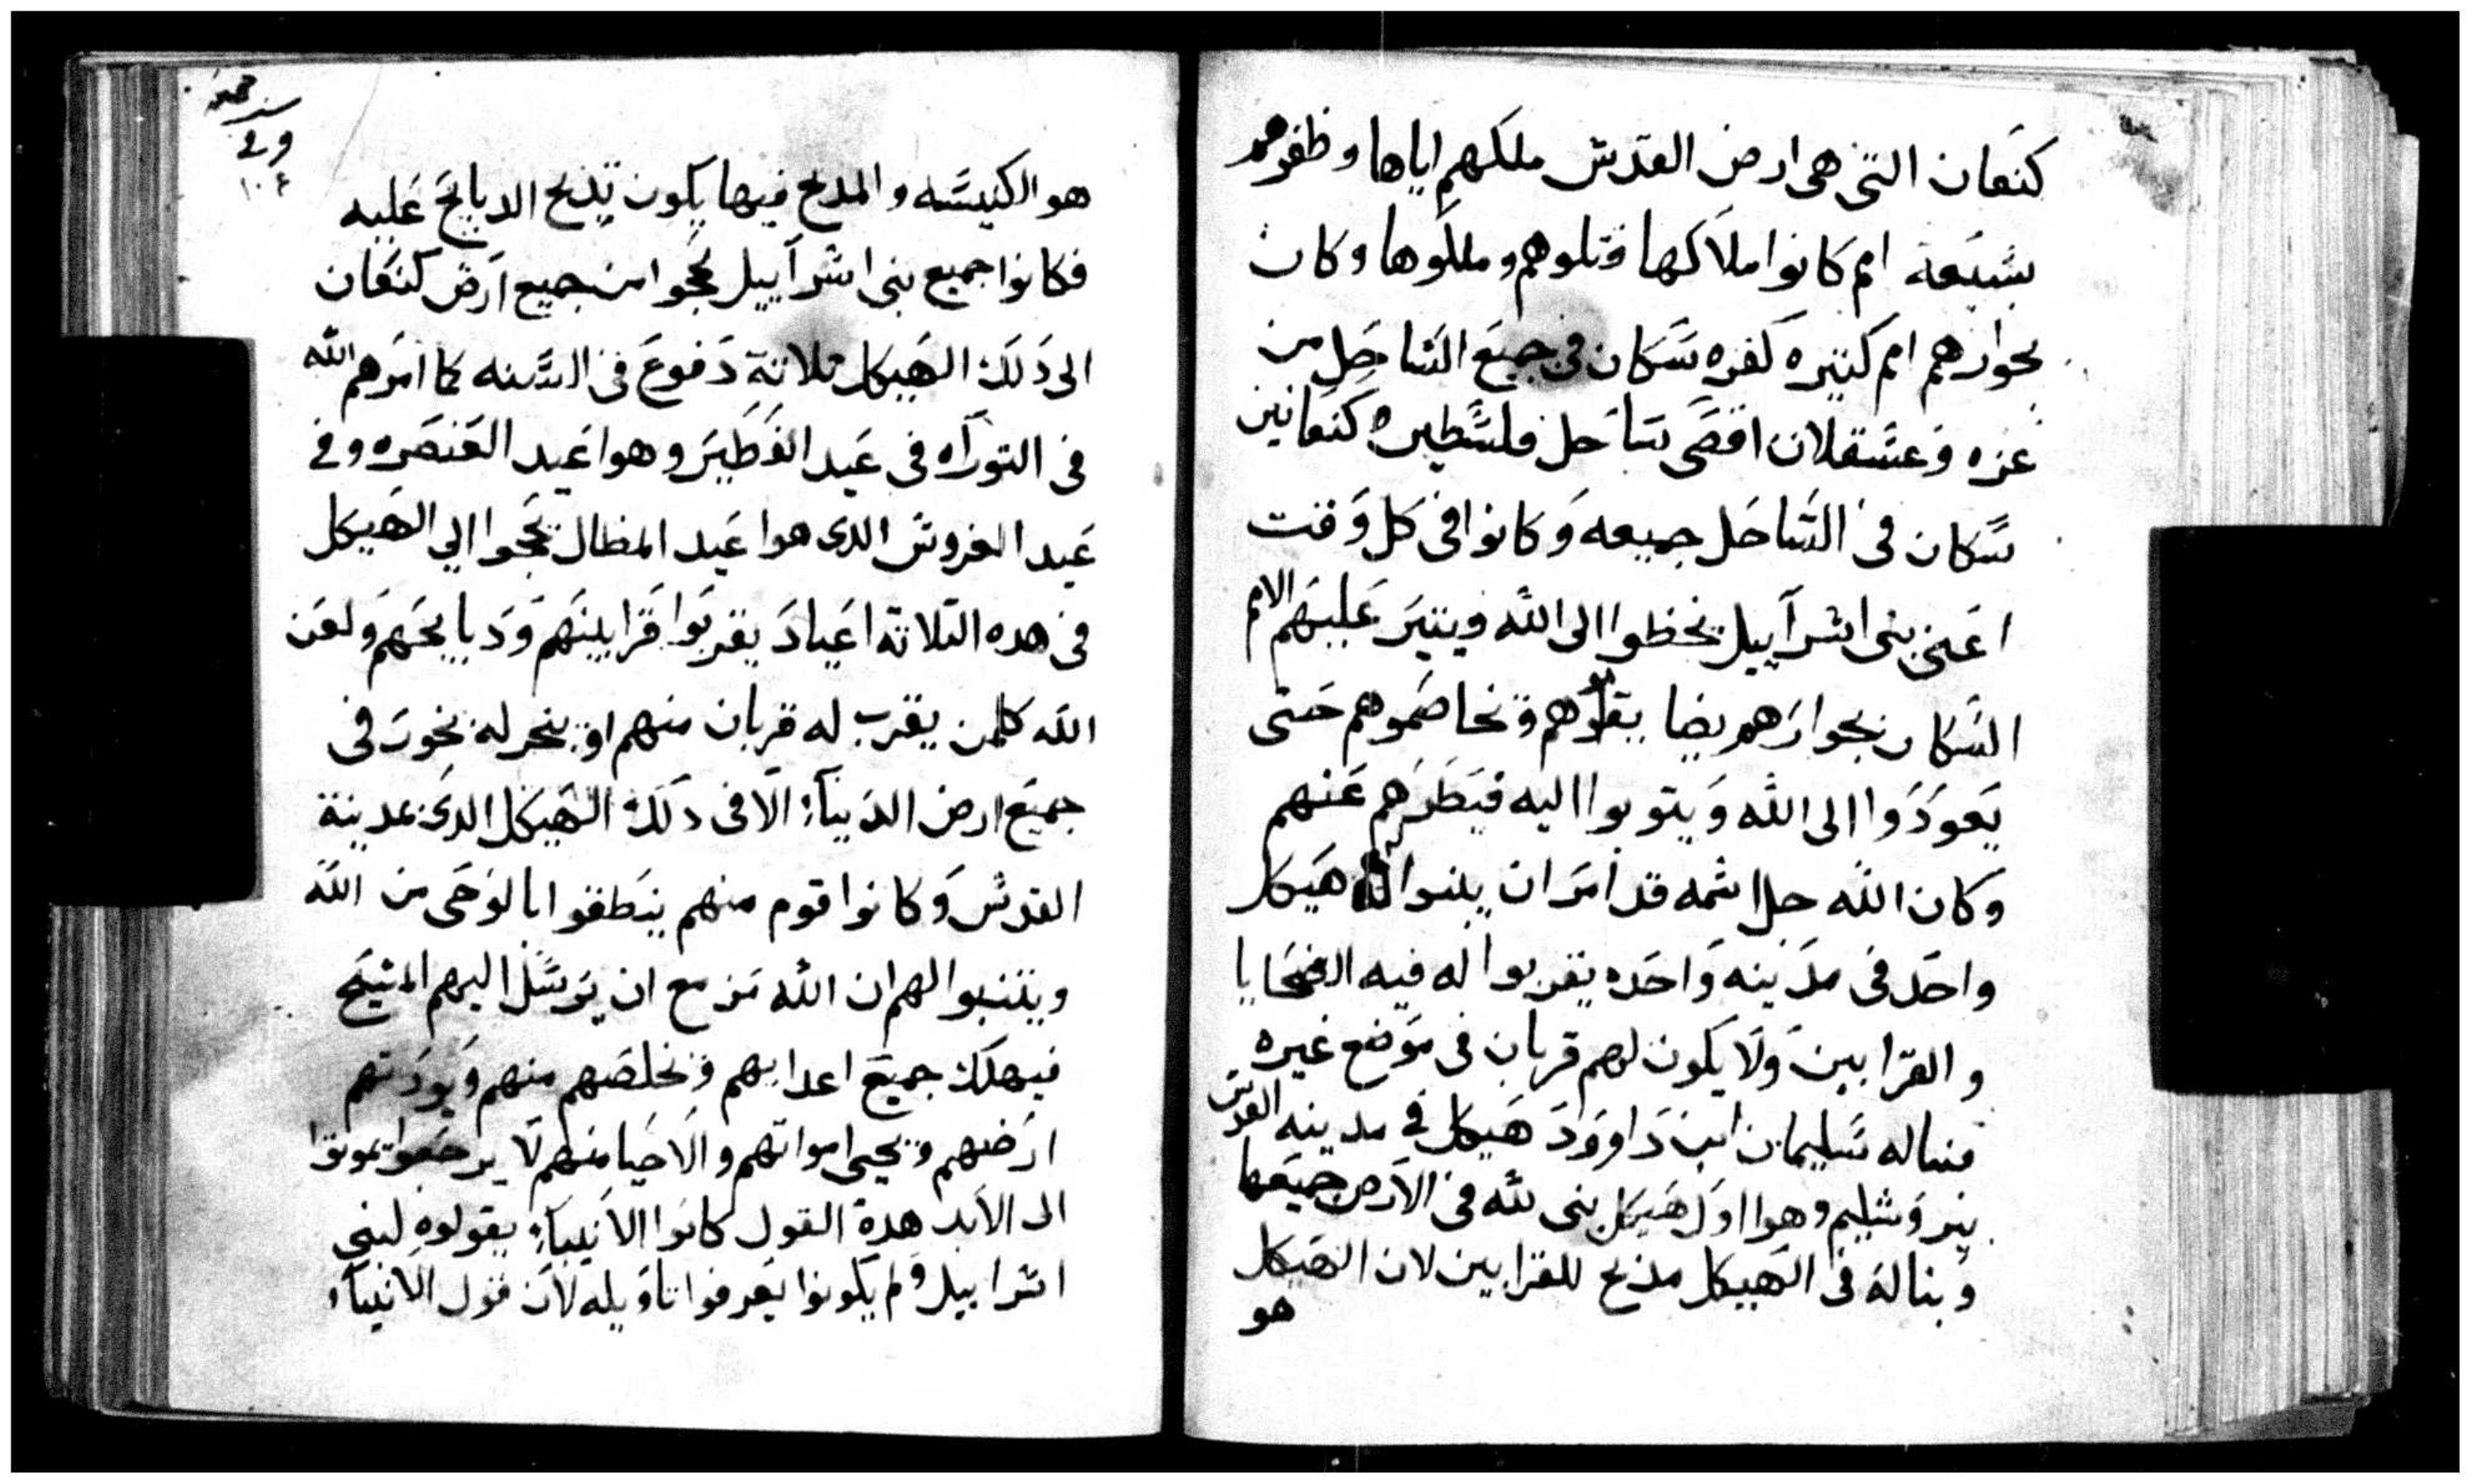 كنعان التى هى ارض القدس ملكهم اياها وظفرهم
بسبعة امم كانوا ملاكها قتلوهم وملكوها وكان
بجوارهم امم كتيره كفره سكان فى جميع الساحل من
غزه وعسقلان اقصى ساحل فلسطين كنعانين
سكان فى الساحل جميعه وكانوا فى كل وقت
اعنى بنى اسرآييل يخطوا الى الله ويتير عليهم الامم
السكان بجوارهم يضا يقوهم ويخاصموهم حتى
يعودوا الى الله ويتوبوا اليه فيطردهم عنهم
وكان الله جل اسمه قد امر ان يبنوا له هيكل
واحد فى مدينه واحده يقربوا له فيه الضحايا
والقرابين ولا يكون لهم قربان فى موضع غيره
فبناله سليمان ابن داوود هيكل فى مدينه القدس
يروشليم وهوا اول هيكل بنى لله فى الارض جميعها
وبناله فى الهيكل مذبح للقرابين لان الهيكل
هو
وفى
١٠٤
هو الكنيسه والمدبح فيها يكون تدبح الدبايح عليه
فكانوا جميع بنى اسرآييل يحجوا من جميع ارض كنعان
الى دلك الهيكل تلاتة دفوع فى السنه كما امرهم الله
فى التورآه فى عيد الفطير وهوا عيد العنصره وفى
عيد العروش الدى هوا عيد المظال يحجوا الى الهيكل
فى هده التلاته اعياد يقربوا قرابينهم ودبايحهم ولعن
الله كلمن يقرب له قربان منهم او يبخر له بخور فى
جميع ارض الدنيآء الا فى دلك الهيكل الدى بمدينة
القدس وكانوا قوم منهم ينطقوا بالوحى من الله
ويتنبوا لهم ان الله مزمع ان يرسل اليهم المسيح
فيهلك جميع اعدايهم ويخلصهم منهم ويورتهم
ارضهم ويحيى امواتهم والاحيا منهم لا يرجعوا يموتوا
الى الابد هدة القول كانوا الانبيآء يقولوه لبنى
اسراييل ولم يكونوا يعرفوا تاويله لان قول الانبيآء